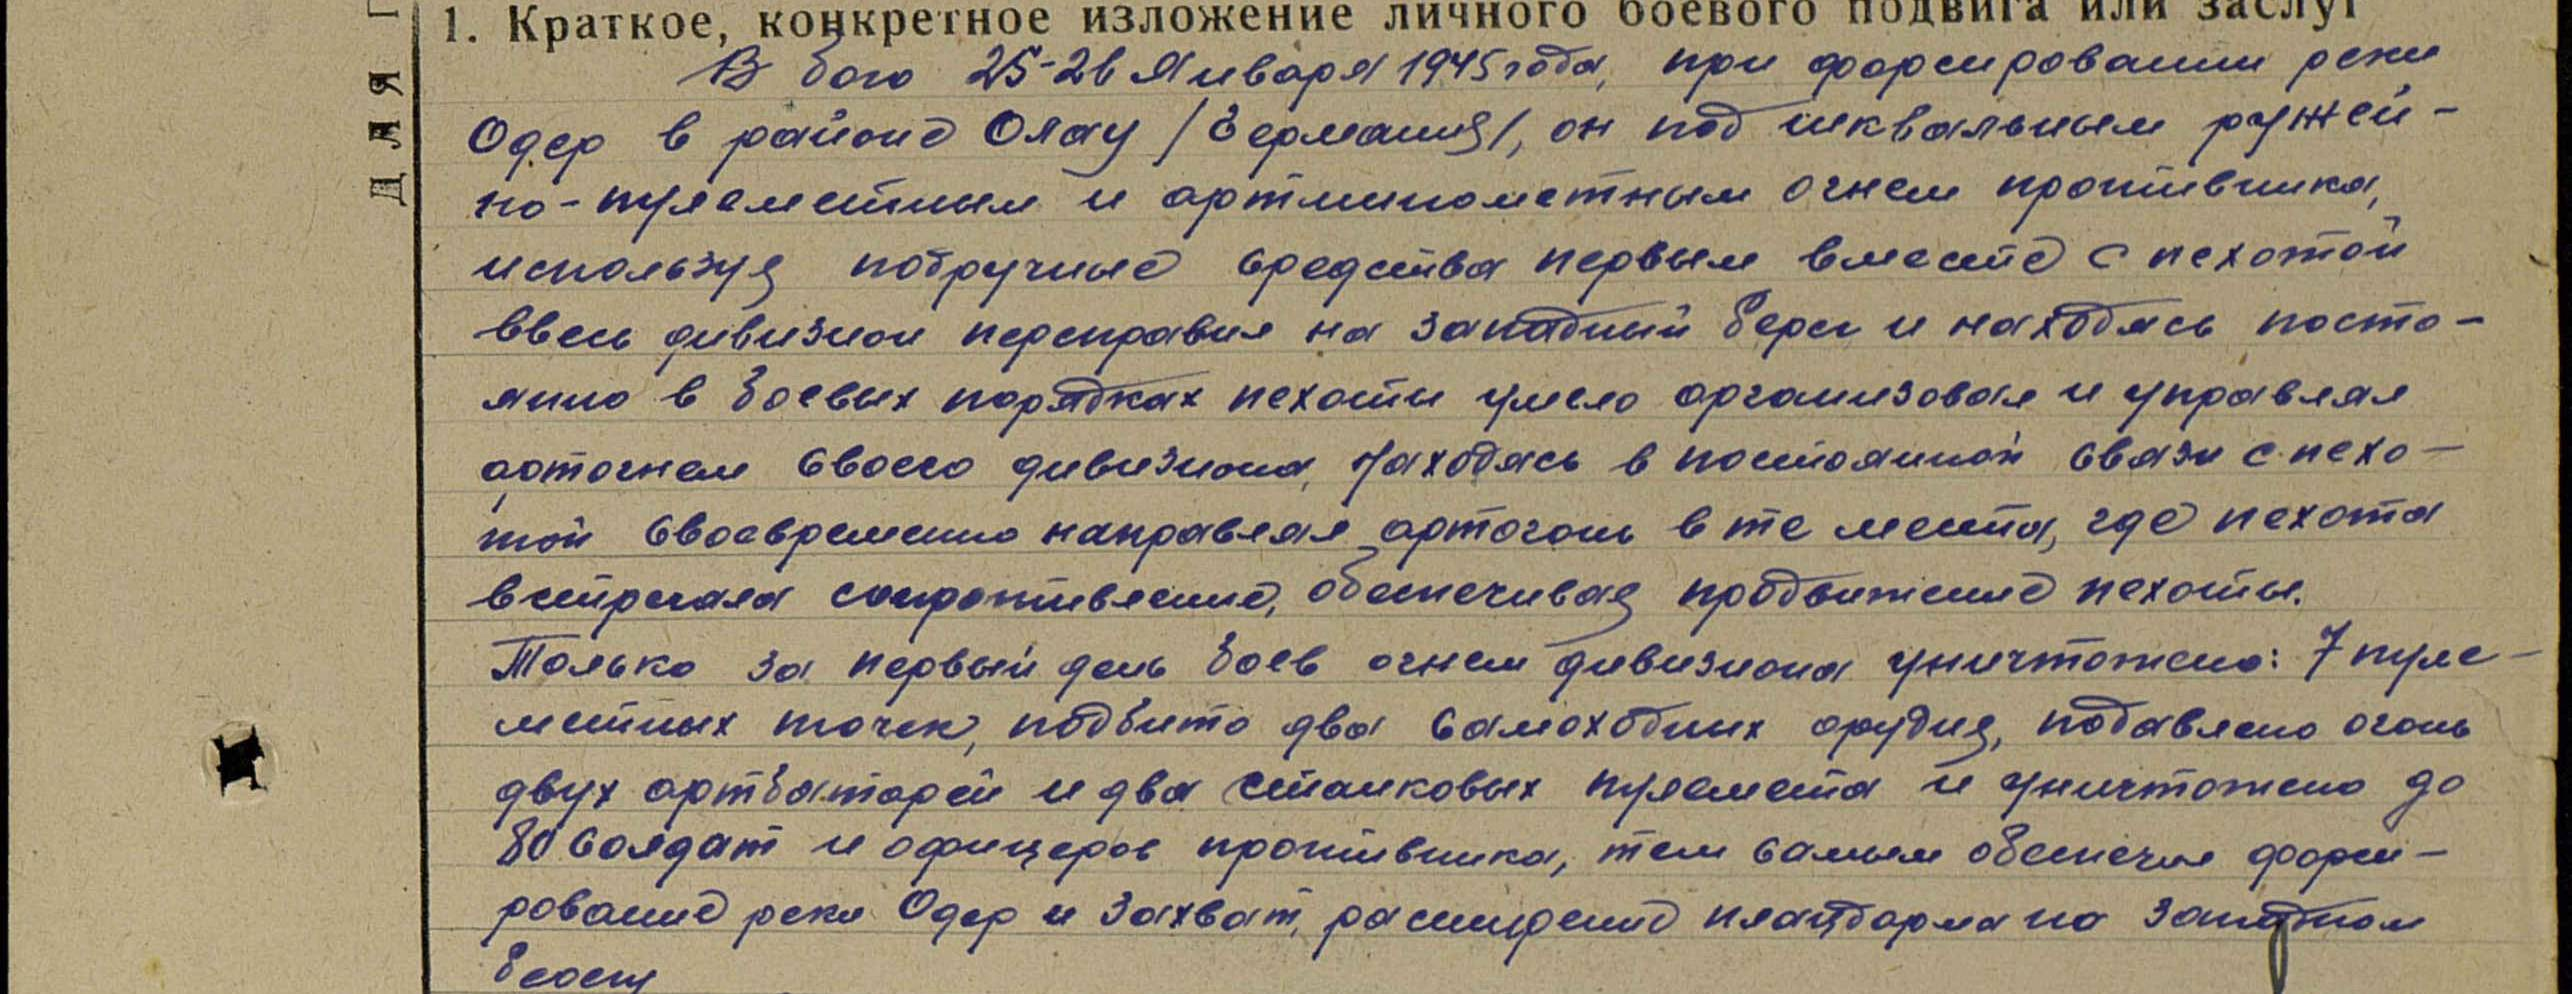 ДЛЯ Г
1. Краткое, конкретное изложение личного боевого подвига или заслуг
В бою 25-26 Января 1945 года, при форсировании реки
Одер в районе Олау /Германия/, он под шквальным ружей-
но-пулеметным и артминометным огнем противника,
используя подручные средства первым вместе с пехотой
ввесь дивизион переправил на западный берег и находясь посто-
янно в боевых порядках пехоты умело организовал и управлял
артогнем своего дивизиона, Находясь в постоянной связи с пехо-
той своевременно направлял артогонь в те места, где пехота
встречала сопротивление, обеспечивая продвижение пехоты.
Только за первый день боев огнем дивизиона уничтожено: 7 пуле-
метных точек, подбито два самоходных орудия, подавлено огонь
двух артбатарей и два станковых пулемета и уничтожено до
80 солдат и офицеров противника, тем самым обеспечил форси-
рование реки Одер и захват, расширение плацдарма на западном
берегу